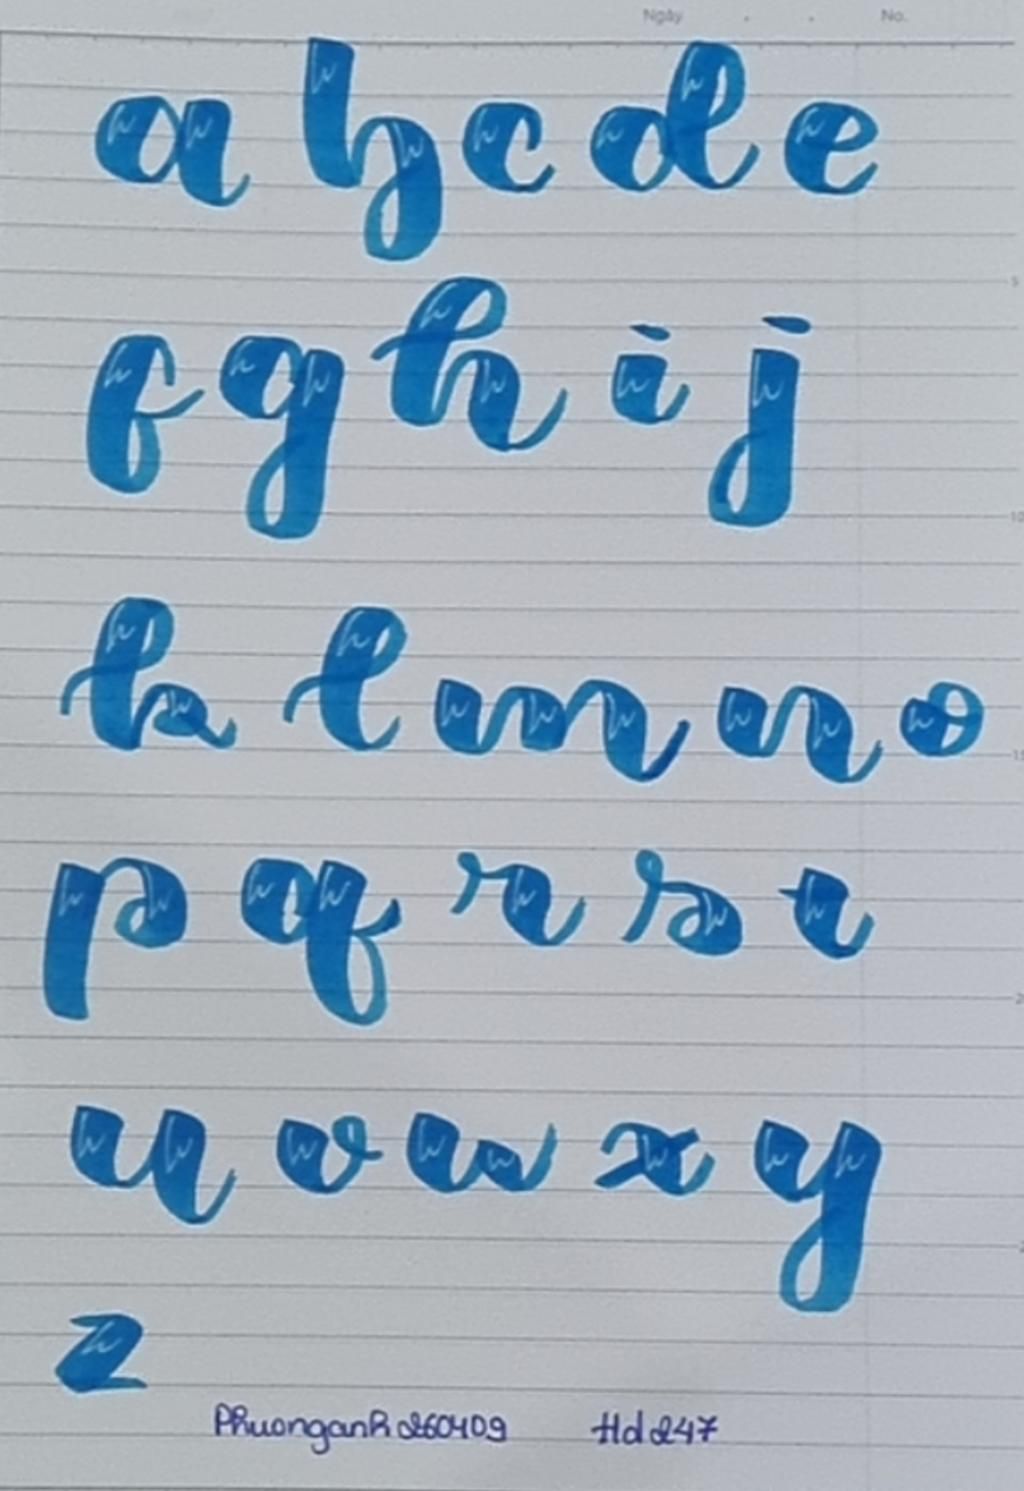 Ngày . . No.
a b c d e
5
f g h i j
10
k l m n o
15
p q r s t
2
u v w x y
2
z
Phuonganh260409 Hd247